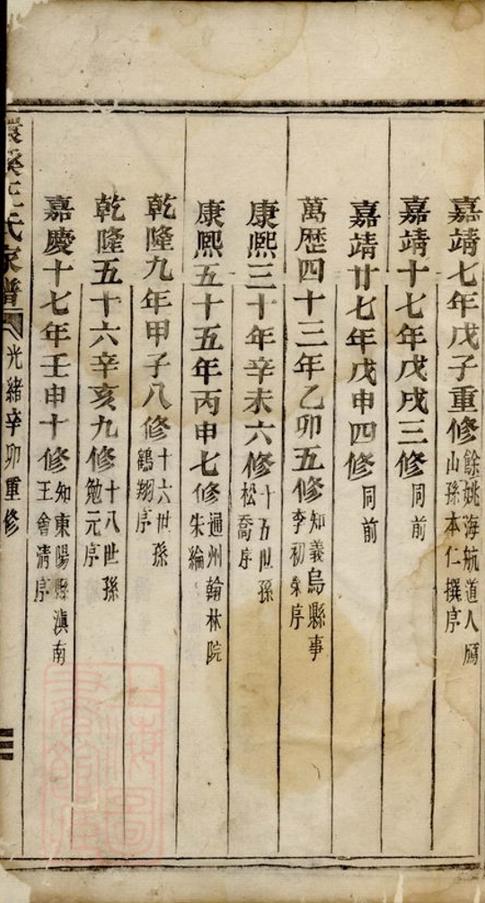 嘉靖七年戊子重修餘姚海航道人鴈山孫本仁撰序
嘉靖十七年戊戌三修同前
嘉靖廿七年戊申四修同前
萬歷四十三年乙卯五修知義烏縣事李初榮序
康熙三十年辛未六修十五世孫松喬序
康熙五十五年丙申七修通州翰林院朱綸
乾隆九年甲子八修十六世孫鶴翔序
乾隆五十六辛亥九修十八世孫勉元序
嘉慶十七年壬申十修知東陽縣滇南王會清序
溪王氏家譜 光緒辛卯重修